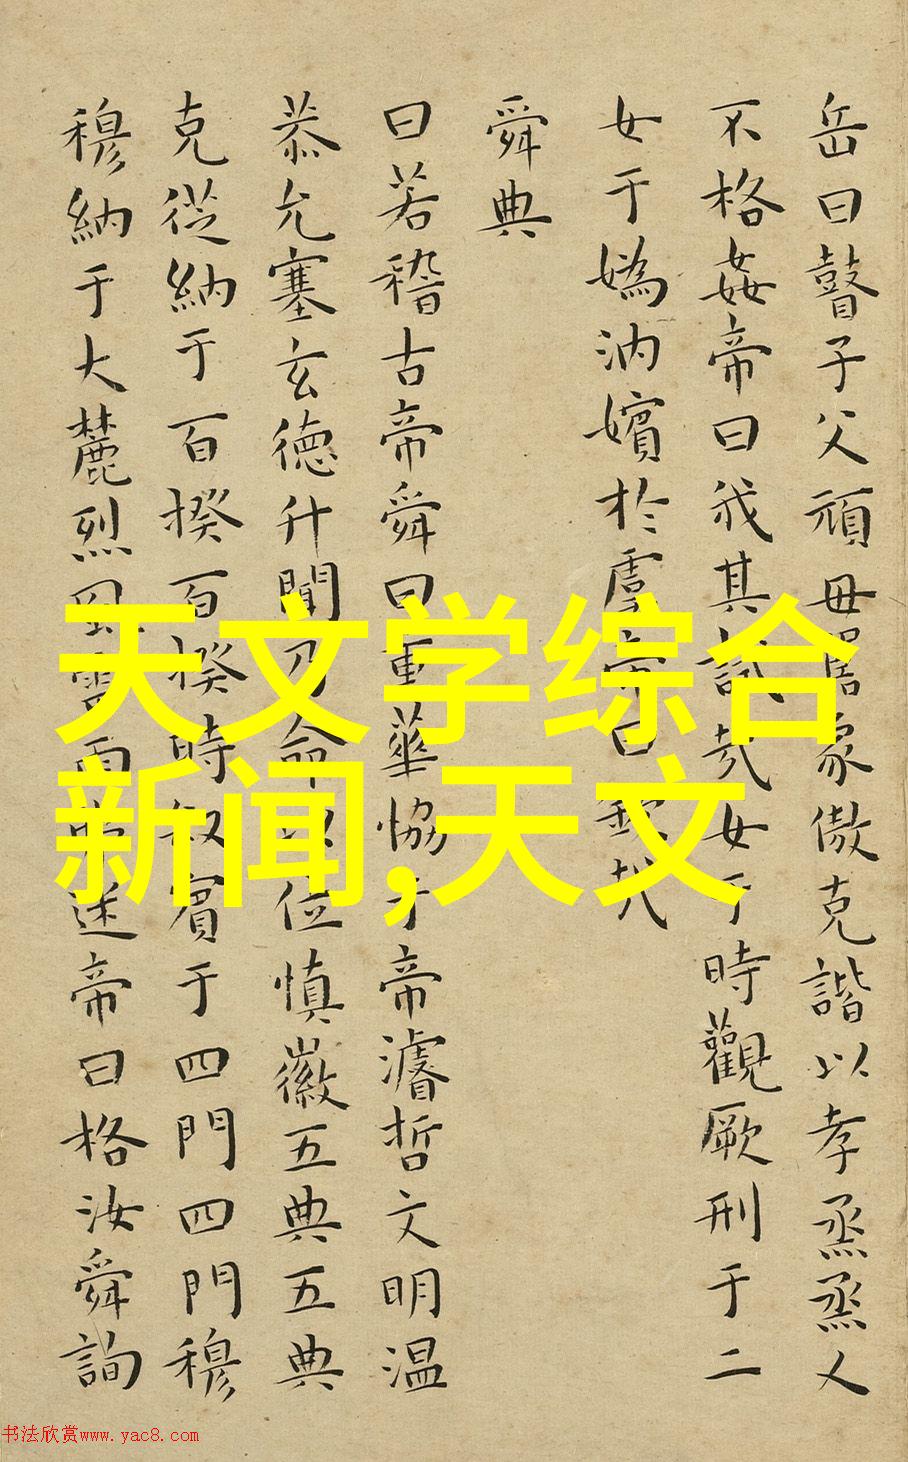 岳曰瞽子父頑母嚚象傲克諧以孝烝烝乂
不格姦帝曰我其試哉女于時觀厥刑于二
女于媯汭嬪於虞帝曰欽哉
舜典
曰若稽古帝舜曰重華協于帝濬哲文明温
恭允塞玄德升聞乃命以位慎徽五典五典
克從納于百揆百揆時叙賓于四門四門穆
穆納于大麓烈風雷雨弗迷帝曰格汝舜詢
天文学综合
新闻,天文
书法欣赏www.yac8.com